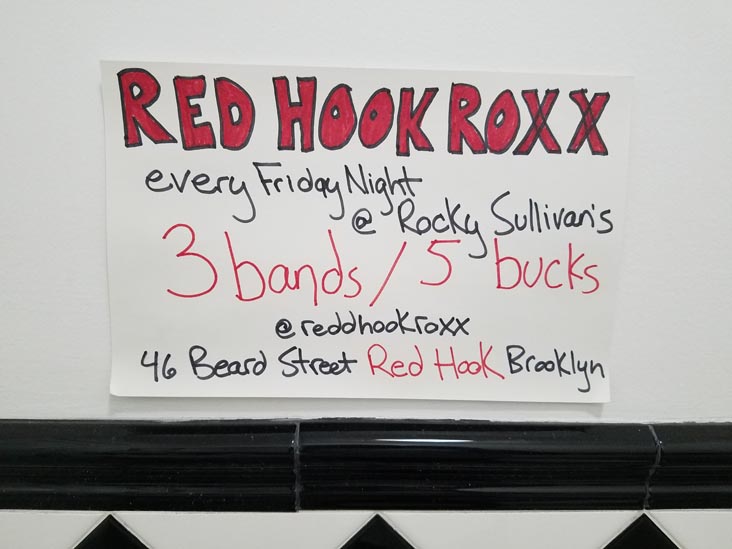 RED HOOK ROXX
every Friday Night
@ Rocky Sullivan's
3 bands / 5 bucks
@reddhookroxx
46 Beard Street Red Hook Brooklyn